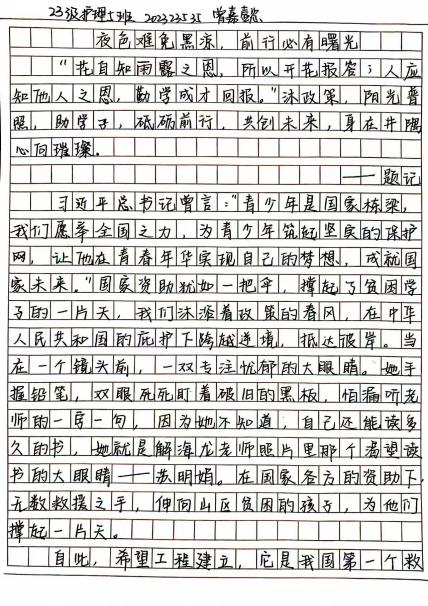 23级护理5班 202323535 曾嘉懿
夜色难免黑凉，前行必有曙光
“花自知雨露之恩，所以开花报答；人应
知他人之恩，勤学成才回报。”沐政策，阳光普
照，助学子，砥砺前行，共创未来，身在井隅
心向璀璨。
——题记
习近平总书记曾言：“青少年是国家栋梁，
我们愿举全国之力，为青少年筑起坚实的保护
网，让他在青春年华实现自己的梦想，成就国
家未来。”国家资助犹如一把伞，撑起了贫困学
子的一片天，我们沐浴着政策的春风，在中华
人民共和国的庇护下跨越逆境，抵达彼岸。当
在一个镜头前，一双专注忧郁的大眼睛。她手
握铅笔，双眼死死盯着破旧的黑板，怕漏听老
师的一字一句，因为她不知道，自己还能读多
久的书，她就是解海龙老师照片里那个渴望读
书的大眼睛——苏明娟。在国家各方的资助下，
无数救援之手，伸向山区贫困的孩子，为他们
撑起一片天。
自此，希望工程建立，它是我国第一个救